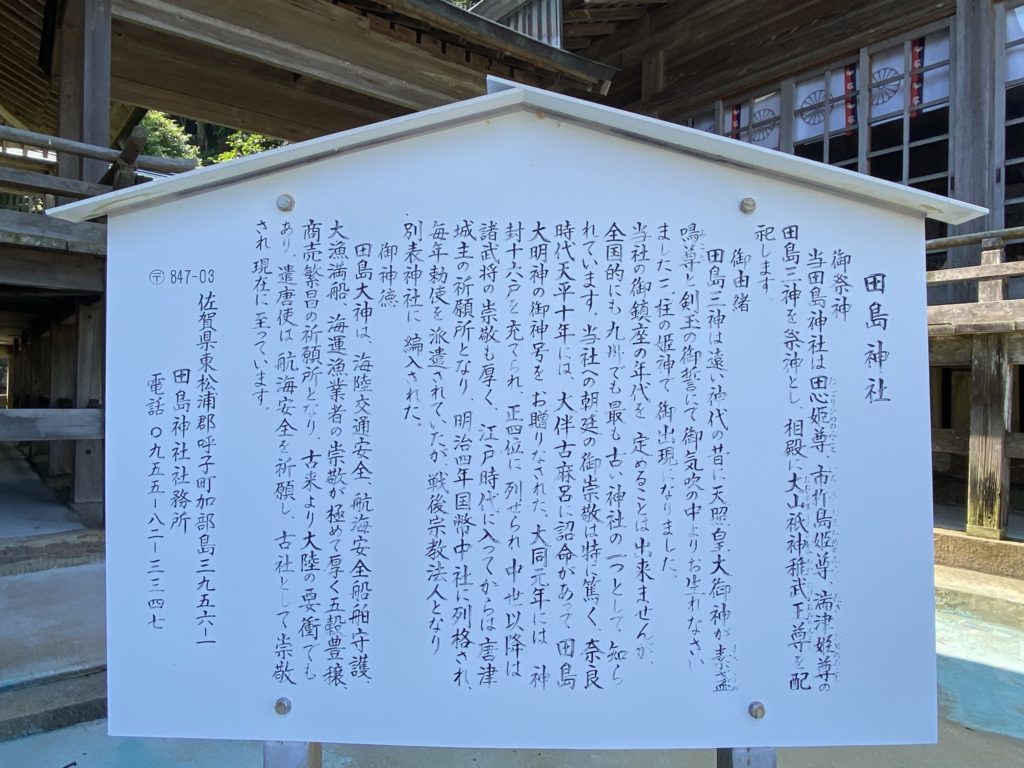 田島神社
御祭神
当田島神社は田心姫尊、市杵島姫尊、湍津姫尊の
田島三神を祭神とし、相殿に大山祇神稚武王尊を配
祀します
御由緒
田島三神は遠い神代の昔に天照皇大御神が素盞
鳴尊と剣玉の御誓にて御気吹の中よりお生れなさい
ました三柱の姫神で、御出現になりました。
当社の御鎮座の年代を定めることは出来ませんが、
全国的にも九州でも最も古い神社の一つとして知ら
れています。当社への朝廷の御崇敬は特に篤く、奈良
時代天平十年には、大伴古麻呂に詔命があって、田島
大明神の御神号をお贈りなされた、大同元年には、神
封十六戸を充てられ、正四位に列せられ、中世以降は
諸武将の崇敬も厚く、江戸時代に入ってからは唐津
城主の祈願所となり、明治四年国幣中社に列格され、
毎年勅使を派遣されていたが戦後宗教法人となり
別表神社に編入された。
御神徳
田島大神は、海陸交通安全、航海安全船舶守護、
大漁満船、海運漁業者の崇敬が極めて厚く五穀豊穣、
商売繁昌の祈願所となり、古来より大陸の要衝でも
あり、遣唐使は航海安全を祈願し、古社として崇敬
され現在に至っています。
〒847-03
佐賀県東松浦郡呼子町加部島三九五六ー一
田島神社社務所
電話 〇九五五ー八二ー三三四七